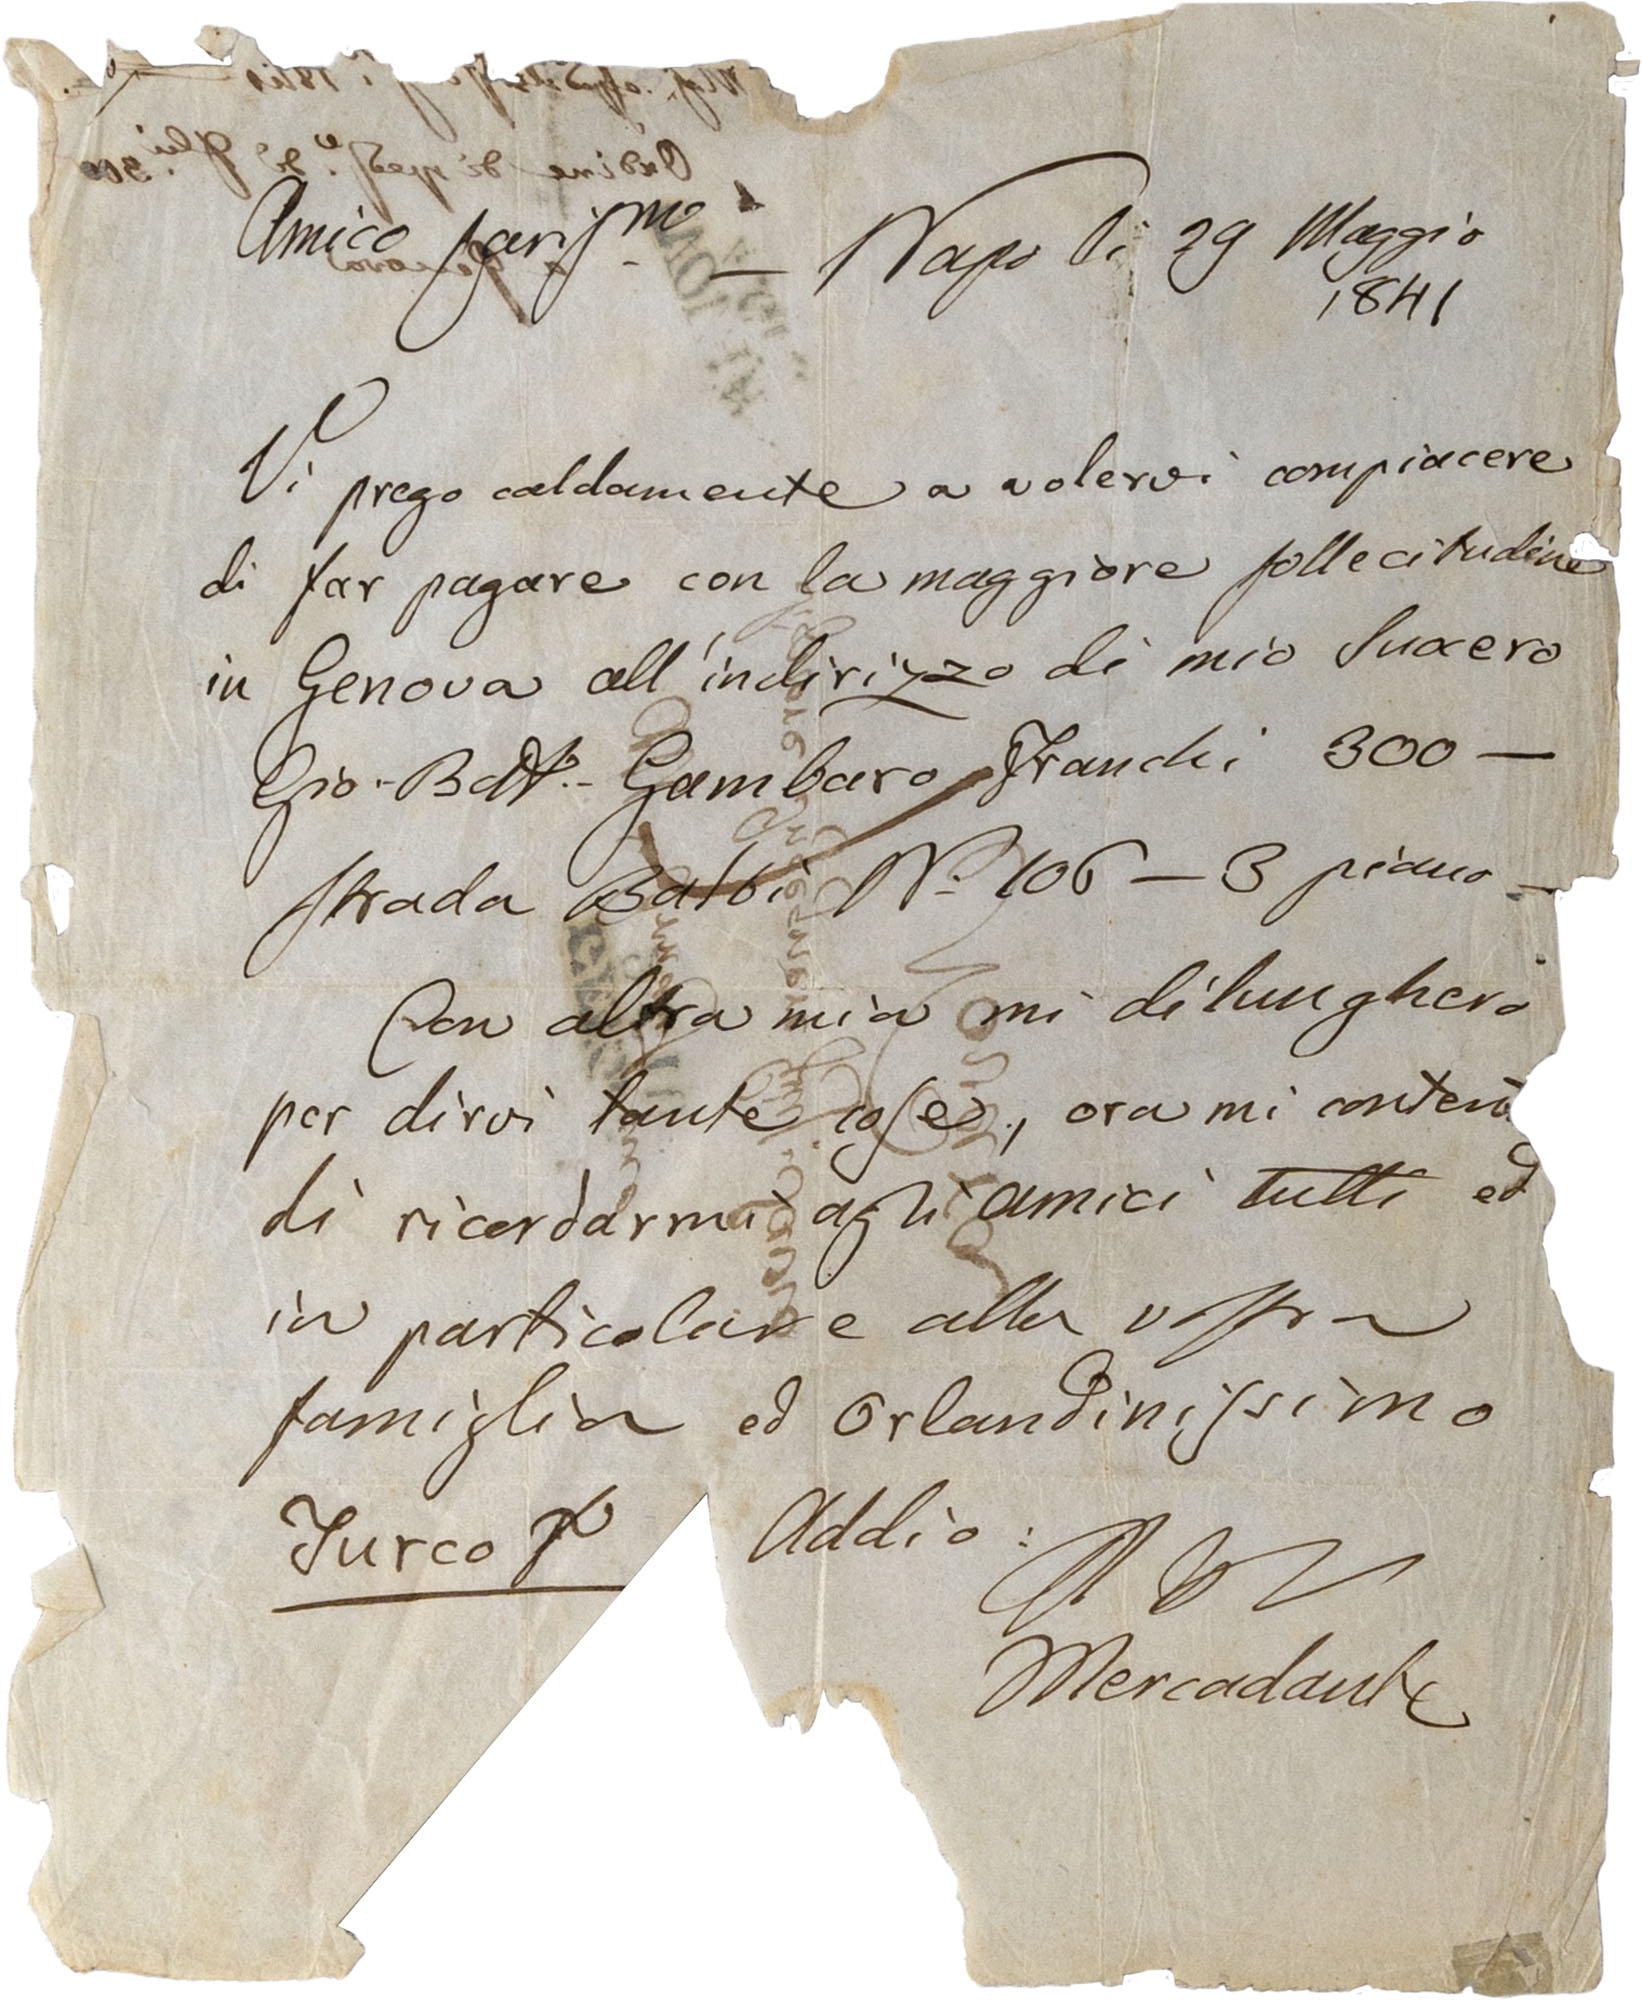 Amico cariss.mo — Napoli 29 Maggio
1841
Vi prego caldamente a volervi compiacere
di far pagare con la maggiore sollecitudine
in Genova all'indirizzo di mio Suocero
Gio. Batt. Gambaro Franchi 300 —
strada Balbi N. 106 — 3 piano —
Con altra mia mi dilungherò
per dirvi tante cose, ora mi
di ricordarmi agli amici tutti ed
in particolare alla vostra
famiglia ed Orlandinissimo
Turco Addio:
Mercadante